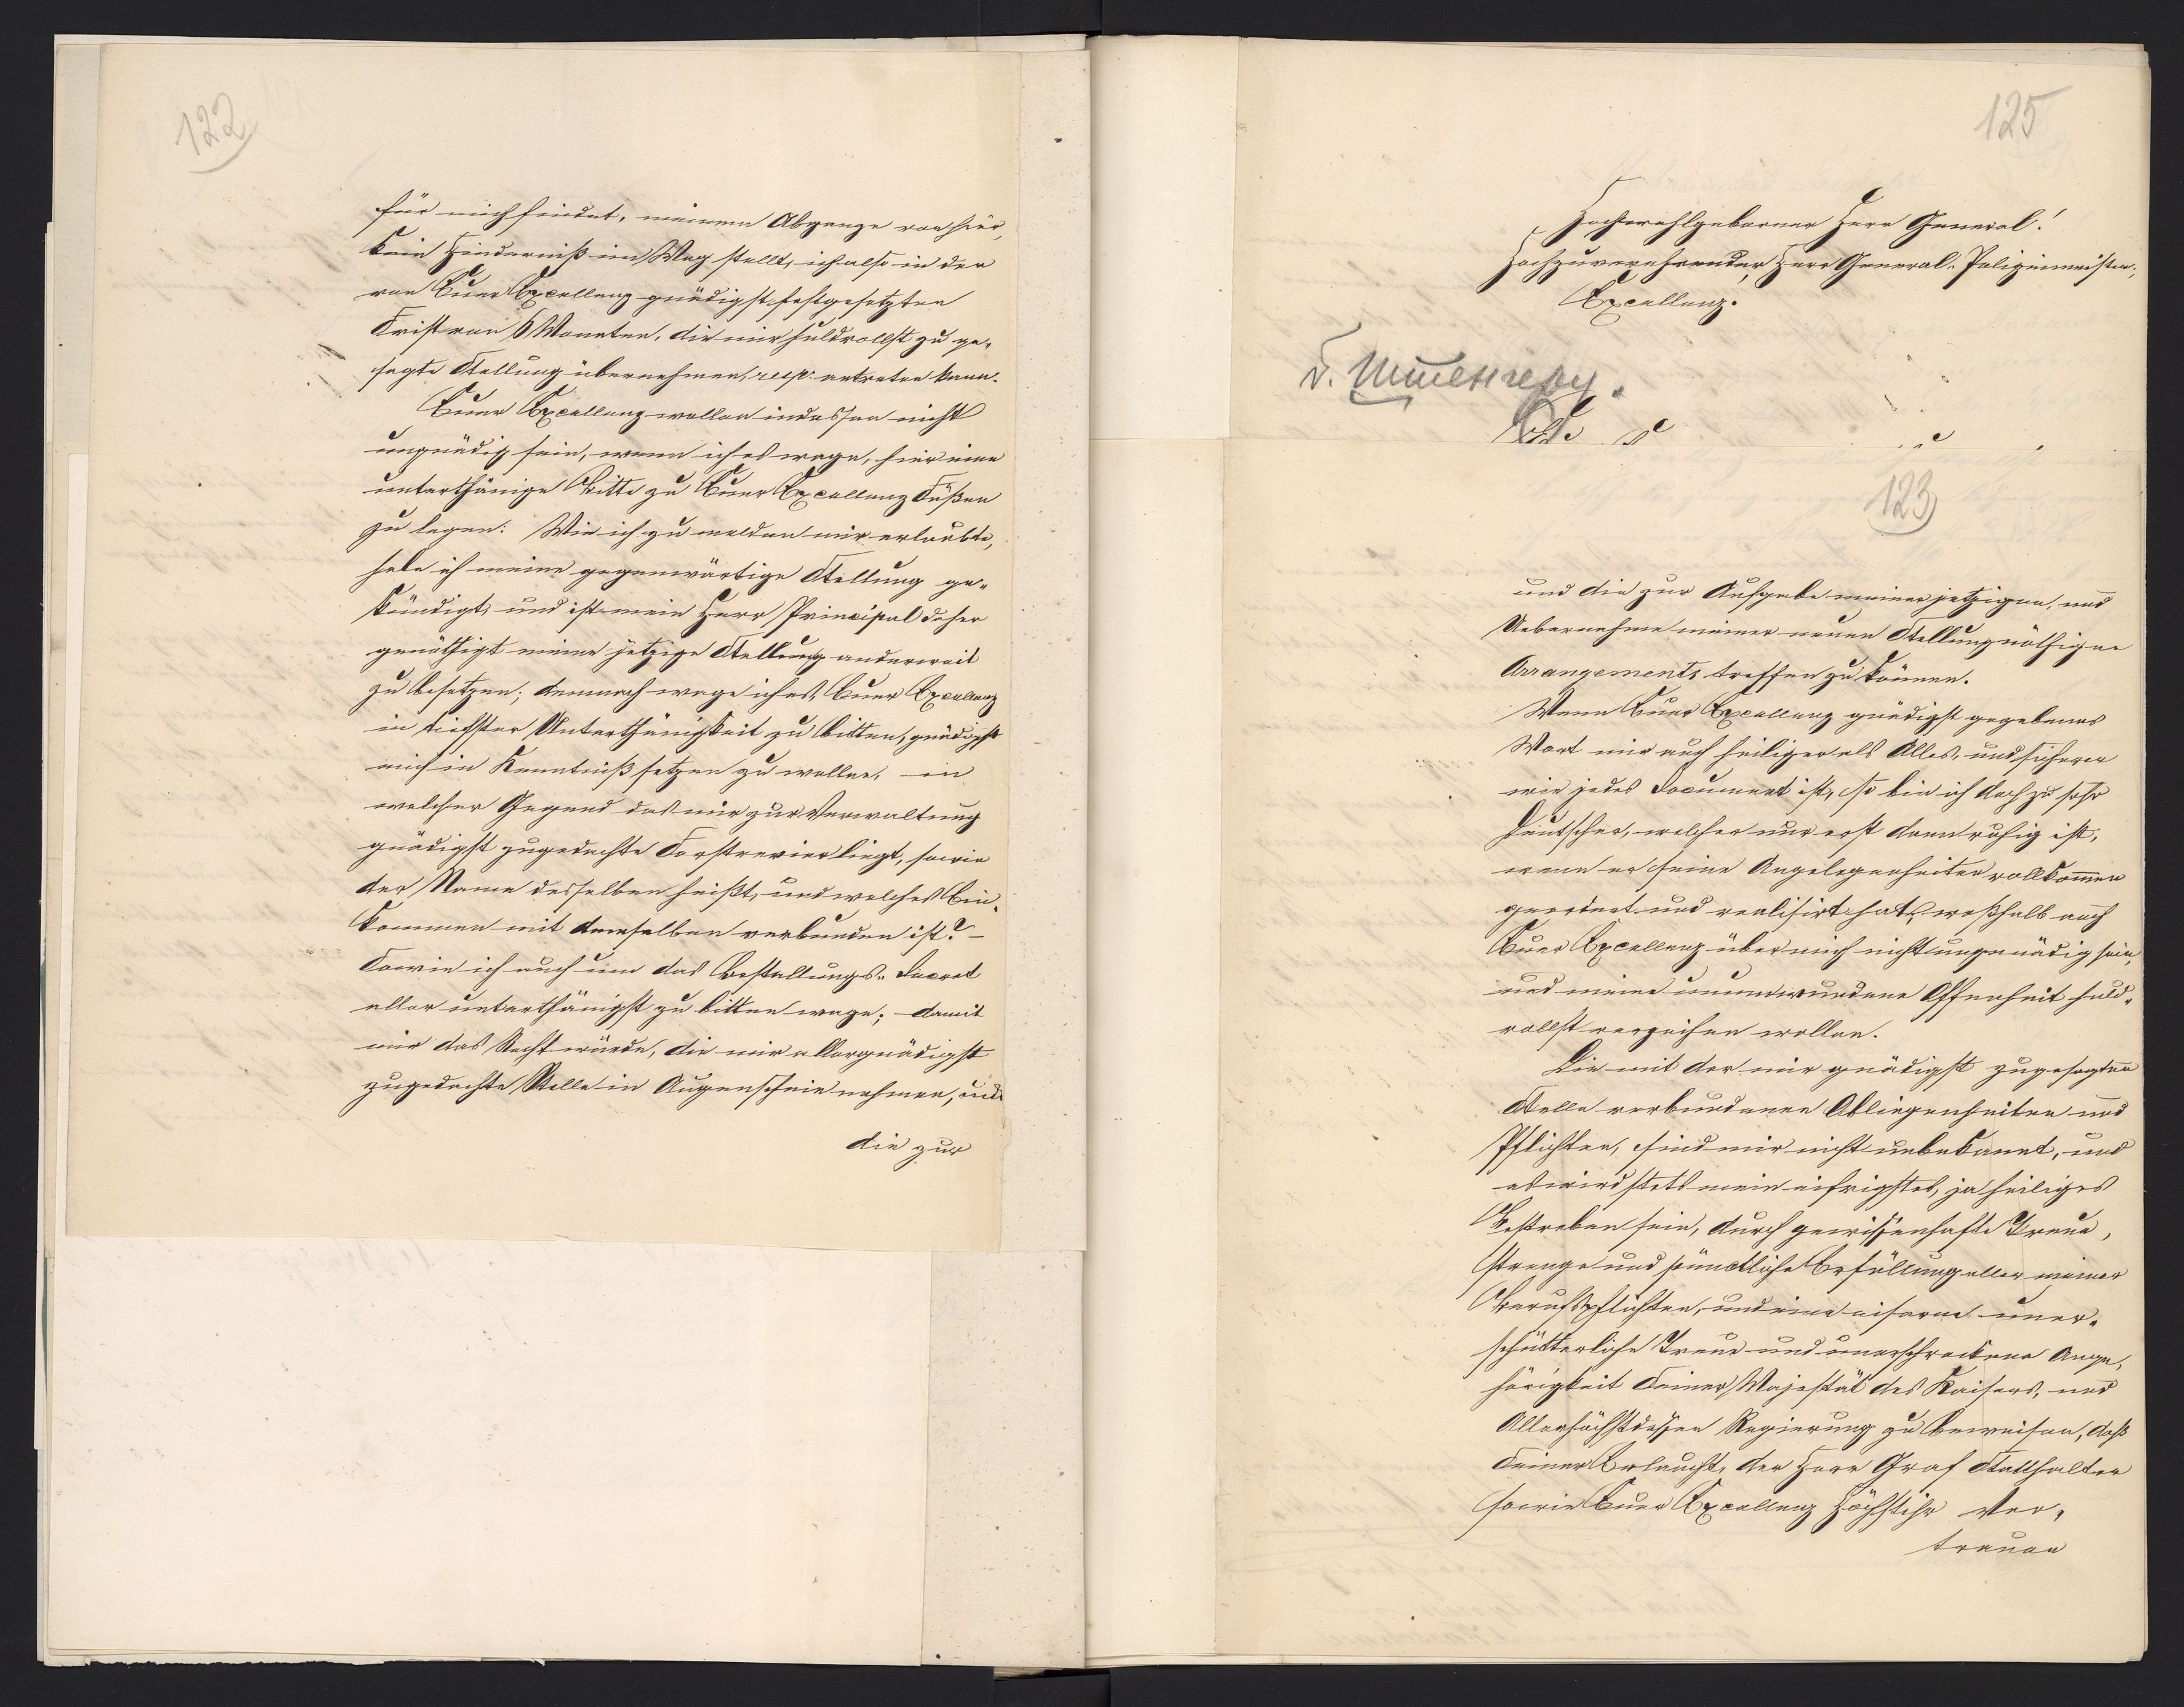 122
für mich findet, meinem Abgange von hier,
kein Hinderniß im Weg stellt, ich also in der
von Euer Excellenz gnädigst festgesetzten
Frist von 6 Monaten, die mir huldvollst zu ge-
sagte Stellung übernehmen, resp. antreten kann.
Euer Excellenz wollen indessen nicht
ungnädig sein, wenn ich es wage, hier eine
unterthänige Bitte zu Euer Excellenz Füßen
zu legen: Wie ich zu melden mir erlaubte,
habe ich meine gegenwärtige Stellung ge-
kündigt, und ist mein Herr Principal daher
genöthigt meine jetzige Stellung anderweit
zu besetzen; demnach wage ich es, Euer Excellenz
in tiefster Unterthänigkeit zu bitten, gnädigst
mich in Kenntniß setzen zu wollen, in
welcher Gegend das mir zur Verwaltung
gnädigst zugedachte Forstrevier liegt, sowie
der Name desselben heißt, und welches Ein-
kommen mit demselben verbunden ist? –
Sowie ich auch um das Bestallungs-Decret
aller unterthänigst zu bitten wage; damit
mir das Recht würde, die mir allergnädigst
zugedachte Stelle in Augenschein nehmen, und
die zur
125
Hochwohlgeborner Herr General!
Hochzuverehrender Herr General-Polizeimeister,
Excellenz.
123
und die zur Aufgabe meiner jetzigen, und
Uebernahme meiner neuen Stellung nöthigen
Arrangements treffen zu können.
Wenn Euer Excellenz gnädigst gegebenes
Wort mir auch heiliger als Alles, und sicherer
wie jedes Document ist, so bin ich doch zu sehr
Deutscher, welcher nur erst dann ruhig ist,
wenn er seine Angelegenheiten vollkommen
geordnet und realisirt hat, weßhalb auch
Euer Excellenz über mich nicht ungnädig sein,
und meine unumwundene Offenheit huld-
vollst verzeihen wollen.
Die mit der mir gnädigst zugesagten
Stelle verbundenen Obliegenheiten und
Pflichten, sind mir nicht unbekannt, und
es wird stets mein eifrigstes, ja heiliges
Bestreben sein, durch gewissenhafte Treue,
strenge und pünctliche Erfüllung aller meiner
Berufspflichten, und eine eiserne uner-
schütterliche Treue und unerschrockene Ange-
hörigkeit Seiner Majestät des Kaisers, und
Allerhöchstdessen Regierung zu beweisen, daß
Seiner Erlaucht, der Herr Graf Statthalter
sowie Euer Excellenz Höchstihr Ver-
trauen